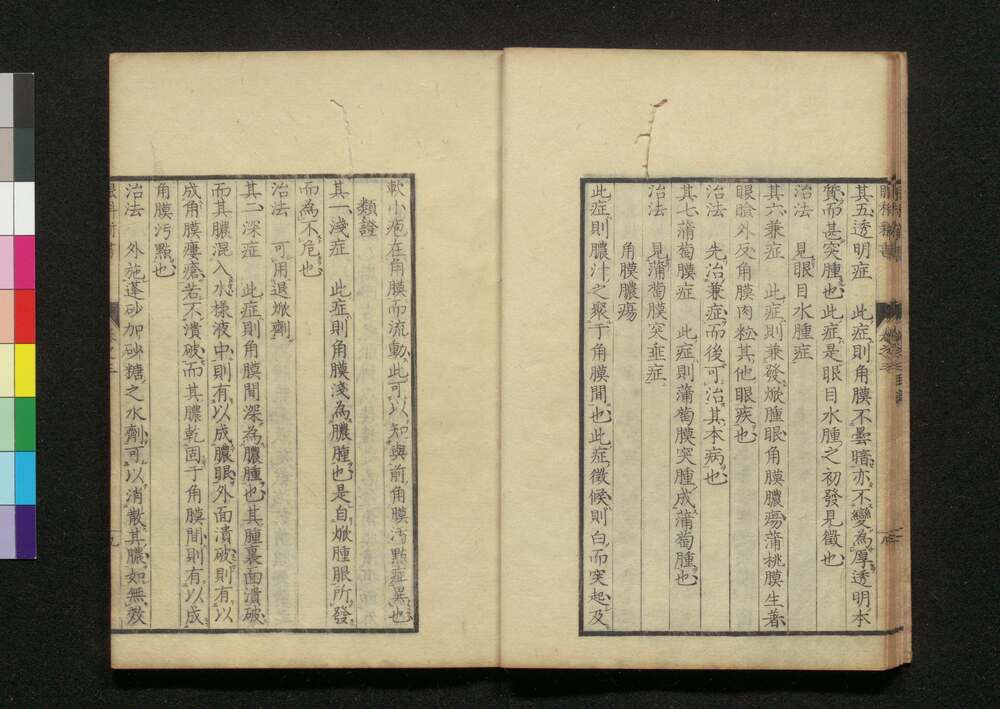 其五透明症　此症則角膜不曇暗亦不變為厚透明本
質而甚突腫也此症是眼目水腫之初發見徵也
治法　見眼目水腫症
其六兼症　此症則兼發焮腫眼角膜膿瘍蒲桃膜生著
眼瞼外反角膜肉粒其他眼疾也
治法　先治兼症而後可治其本病也
其七蒲萄膜症　此症則蒲萄膜突腫成蒲萄腫也
治法　見蒲萄膜突垂症
角膜膿瘍
此症則膿汁之聚于角膜間也此症徵候則白而突起及
軟小疱在角膜而流動此可以知與前角膜汚點症異也
類證
其一淺症　此症則角膜淺為膿腫也是自焮腫眼所發
而為不危也
治法　可用退焮劑
其二深症　此症則角膜間深為膿腫也其腫裏面潰破
而其膿混入水樣液中則有以成膿眼外面潰破則有以
成角膜瘻瘡若不潰破而其膿乾固于角膜間則有以成
角膜汚點也
治法　外施蓬砂加砂糖之水劑可以消散其膿如無效